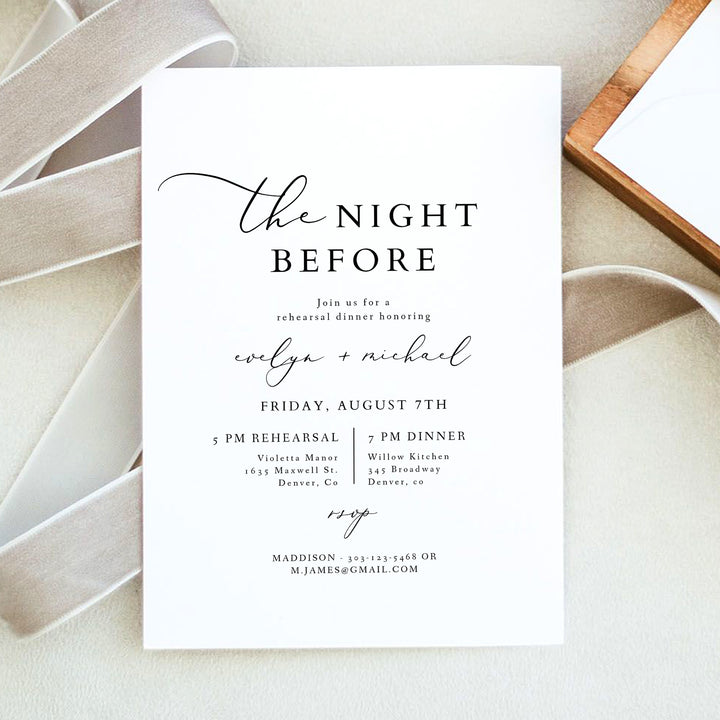 the NIGHT
BEFORE
Join us for a
rehearsal dinner honoring
evelyn + michael
FRIDAY, AUGUST 7TH
5 PM REHEARSAL
Violetta Manor
1635 Maxwell St.
Denver, Co
7 PM DINNER
Willow Kitchen
345 Broadway
Denver, co
rsvp
MADDISON - 303-123-5468 OR
M.JAMES@GMAIL.COM